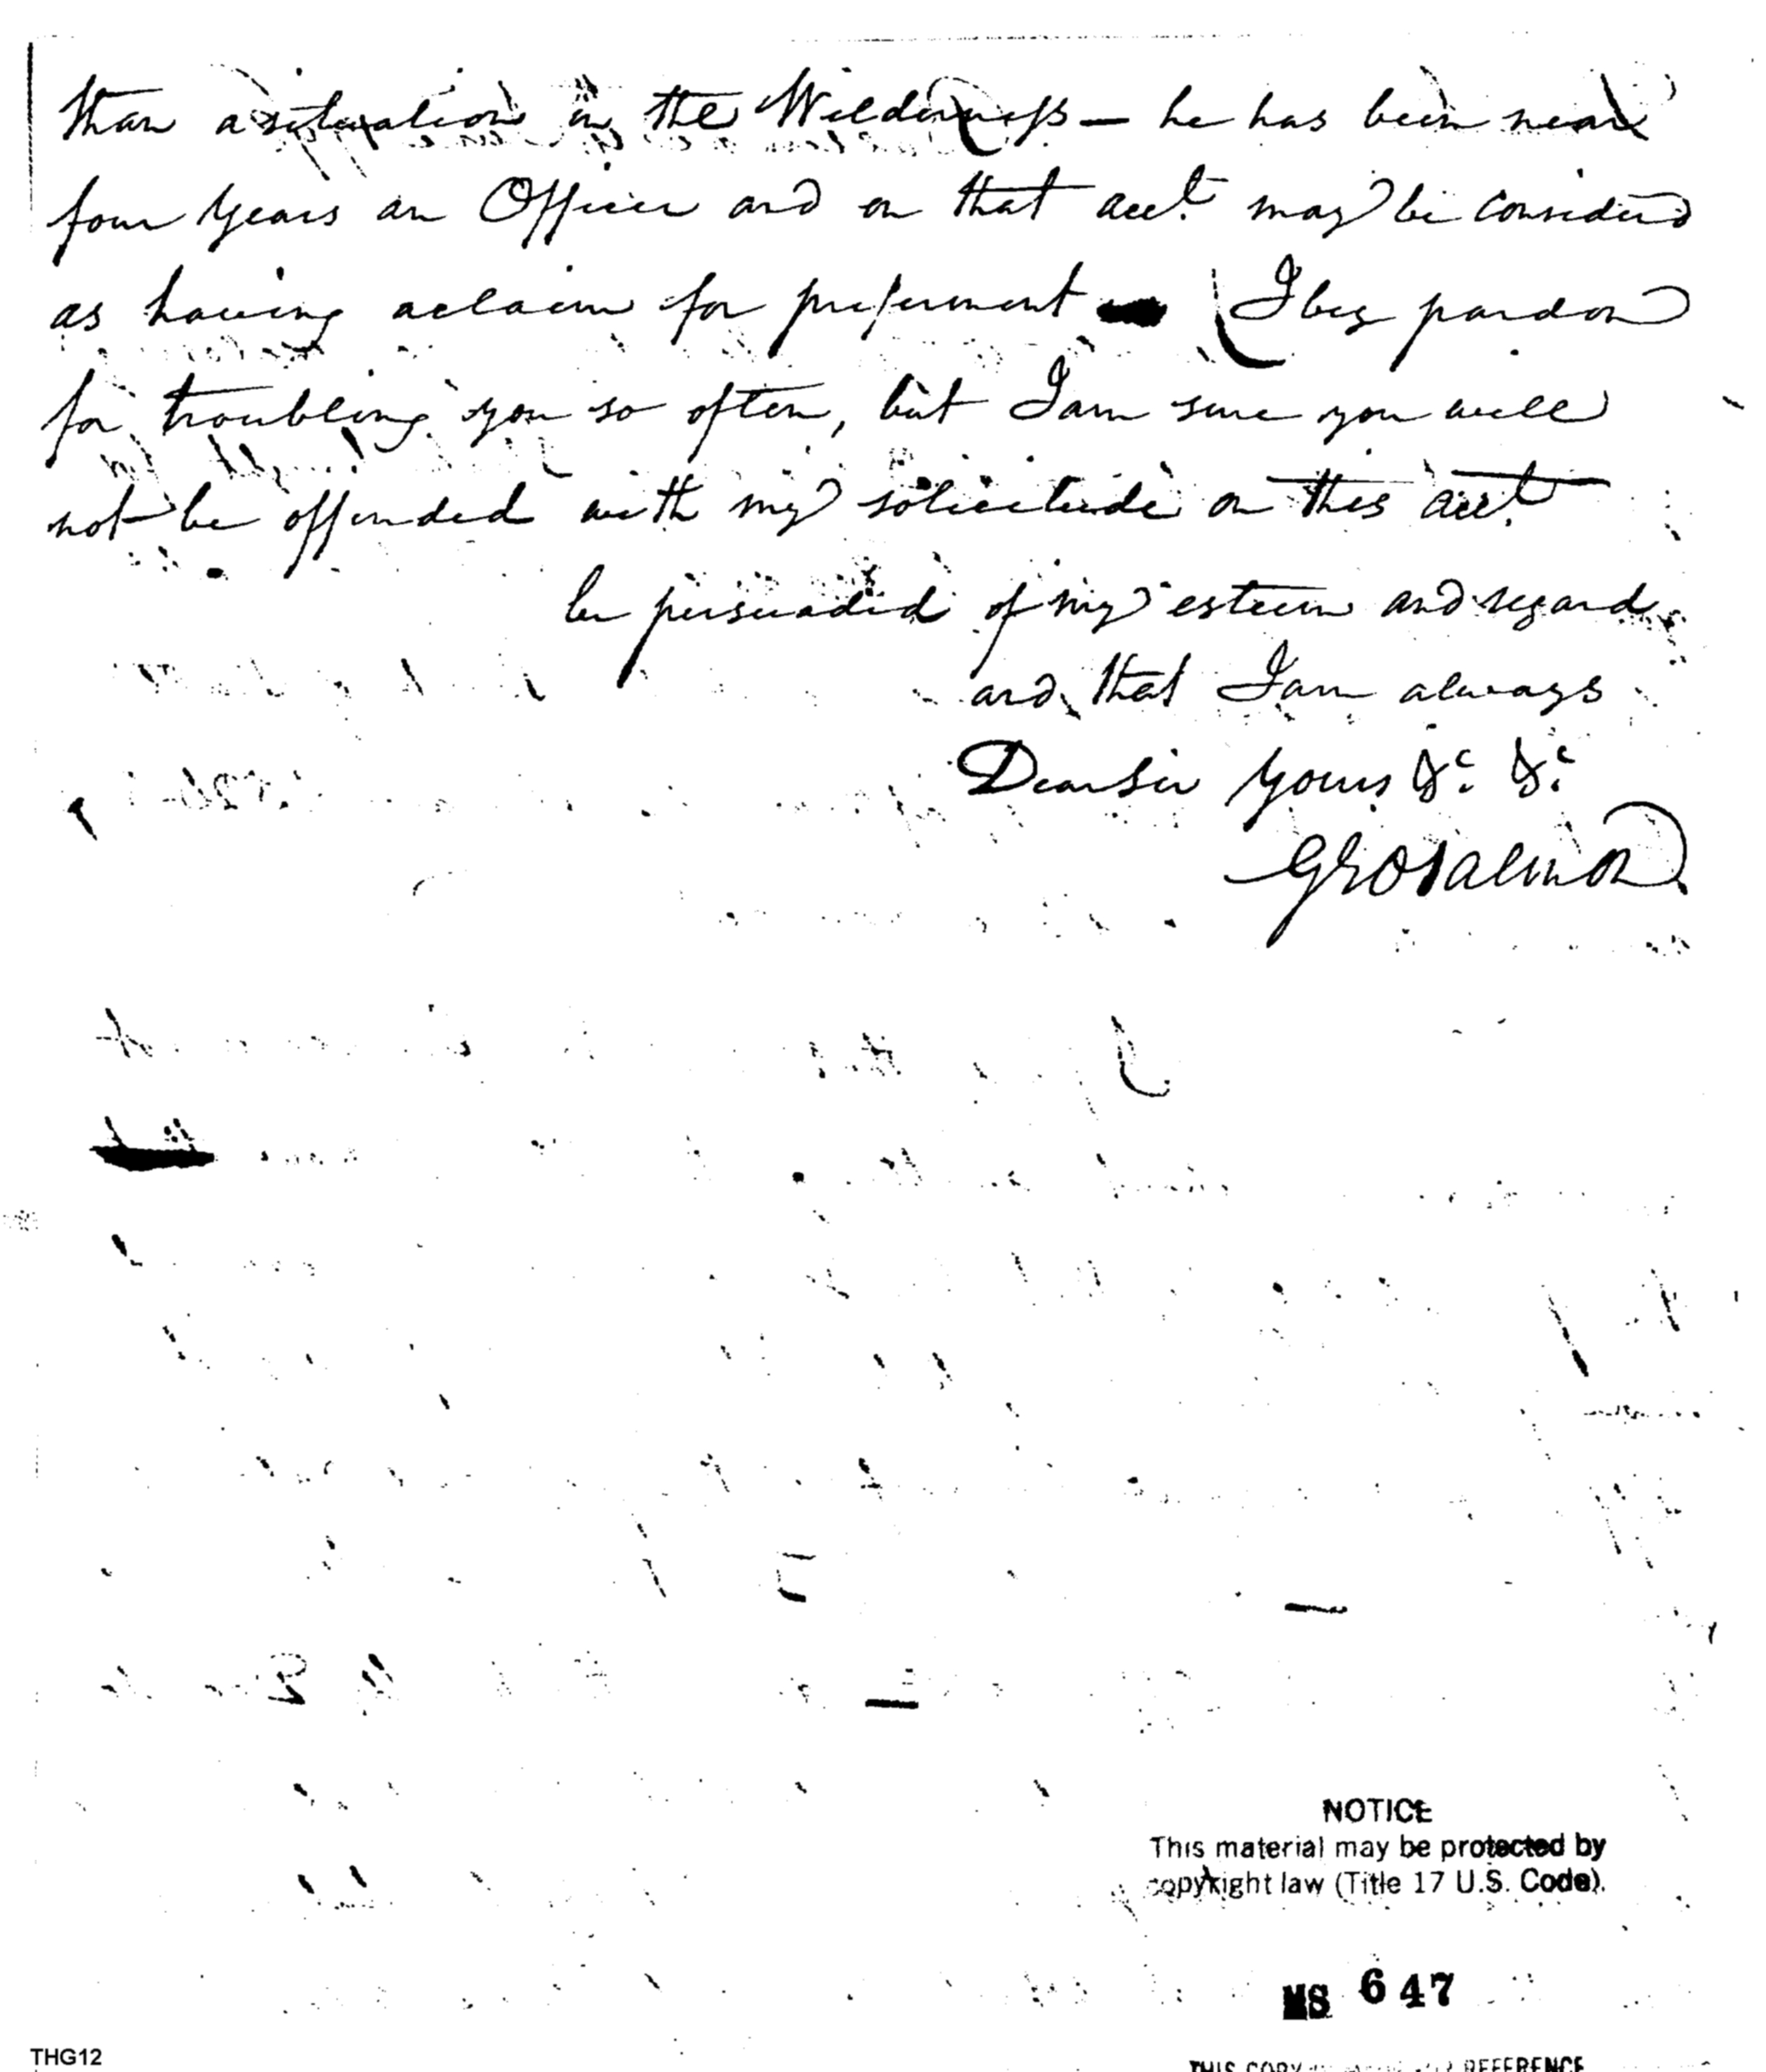 than a situation in the Wilderness — he has been near
four years an Officer and on that acct. may be considerd
as having a claim for preferment I beg pardon
for troubling you so often, but I am sure you will
not be offended with my solicitude on this acct.
be persuaded of my esteem and regard
and that I am always
Dear Sir Yours &c. &c.
NOTICE
This material may be protected by
copyright law (Title 17 U.S. Code).
MS 647
THG12
THIS COPY REFERENCE